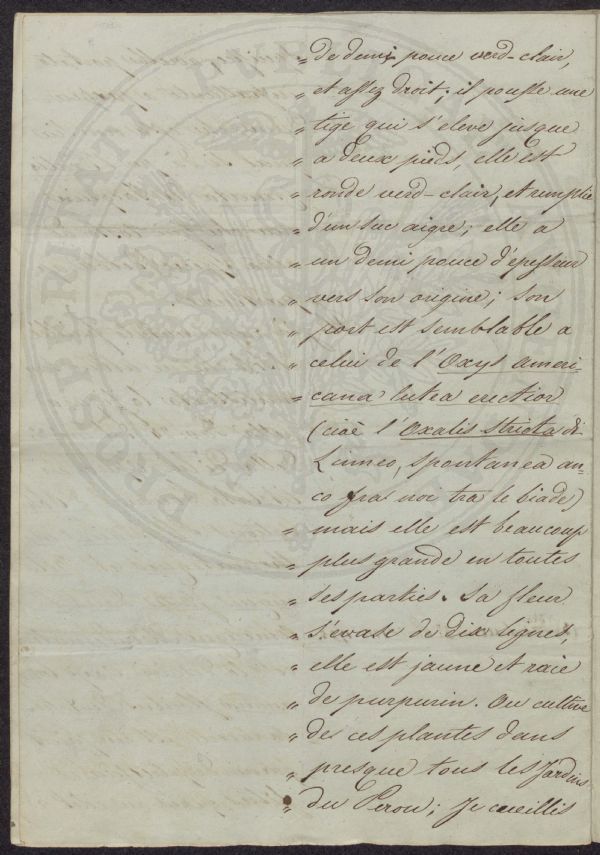 „ de demi pouce verd-clair,
„ et assez droit; il pousse une
„ tige qui s'eleve jusque
„ a deux pieds, elle est
„ ronde verd-clair, et remplie
„ d'un suc aigre; elle a
„ un demi pouce d'epesseur
„ vers son origine; son
„ port est semblable a
„ celui de l'Oxys ameri-
„ cana lutea erectior
(cioè l'Oxalis stricta di
Linneo, spontanea an-
co fra noi tra le biade)
„ mais elle est beaucoup
„ plus grande en toutes
„ ses parties. Sa fleur
„ s'evase de dix lignes,
„ elle est jaune et raie
„ de purpurin. On cultive
„ des ces plantes dans
„ presque tous les Jardins
„ du Perou; Je cueillis